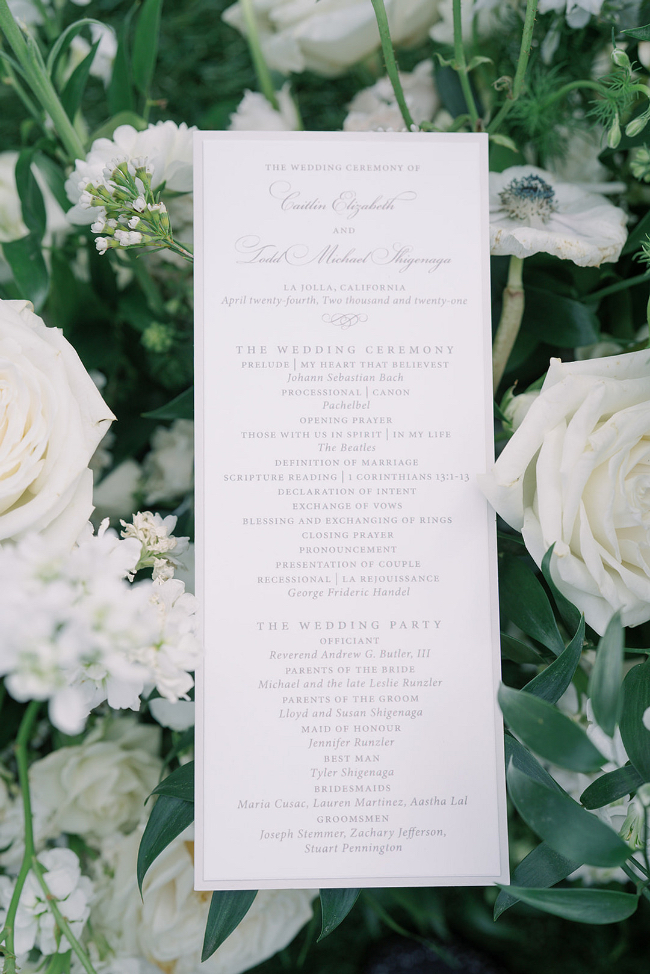 THE WEDDING CEREMONY OF
Caitlin Elizabeth
AND
Todd Michael Shigenaga
LA JOLLA, CALIFORNIA
April twenty-fourth, Two thousand and twenty-one
THE WEDDING CEREMONY
PRELUDE | MY HEART THAT BELIEVEST
Johann Sebastian Bach
PROCESSIONAL | CANON
Pachelbel
OPENING PRAYER
THOSE WITH US IN SPIRIT | IN MY LIFE
The Beatles
DEFINITION OF MARRIAGE
SCRIPTURE READING | 1 CORINTHIANS 13:1-13
DECLARATION OF INTENT
EXCHANGE OF VOWS
BLESSING AND EXCHANGING OF RINGS
CLOSING PRAYER
PRONOUNCEMENT
PRESENTATION OF COUPLE
RECESSIONAL | LA REJOUISSANCE
George Frideric Handel
THE WEDDING PARTY
OFFICIANT
Reverend Andrew G. Butler, III
PARENTS OF THE BRIDE
Michael and the late Leslie Runzler
PARENTS OF THE GROOM
Lloyd and Susan Shigenaga
MAID OF HONOUR
Jennifer Runzler
BEST MAN
Tyler Shigenaga
BRIDESMAIDS
Maria Cusac, Lauren Martinez, Aastha Lal
GROOMSMEN
Joseph Stemmer, Zachary Jefferson,
Stuart Pennington